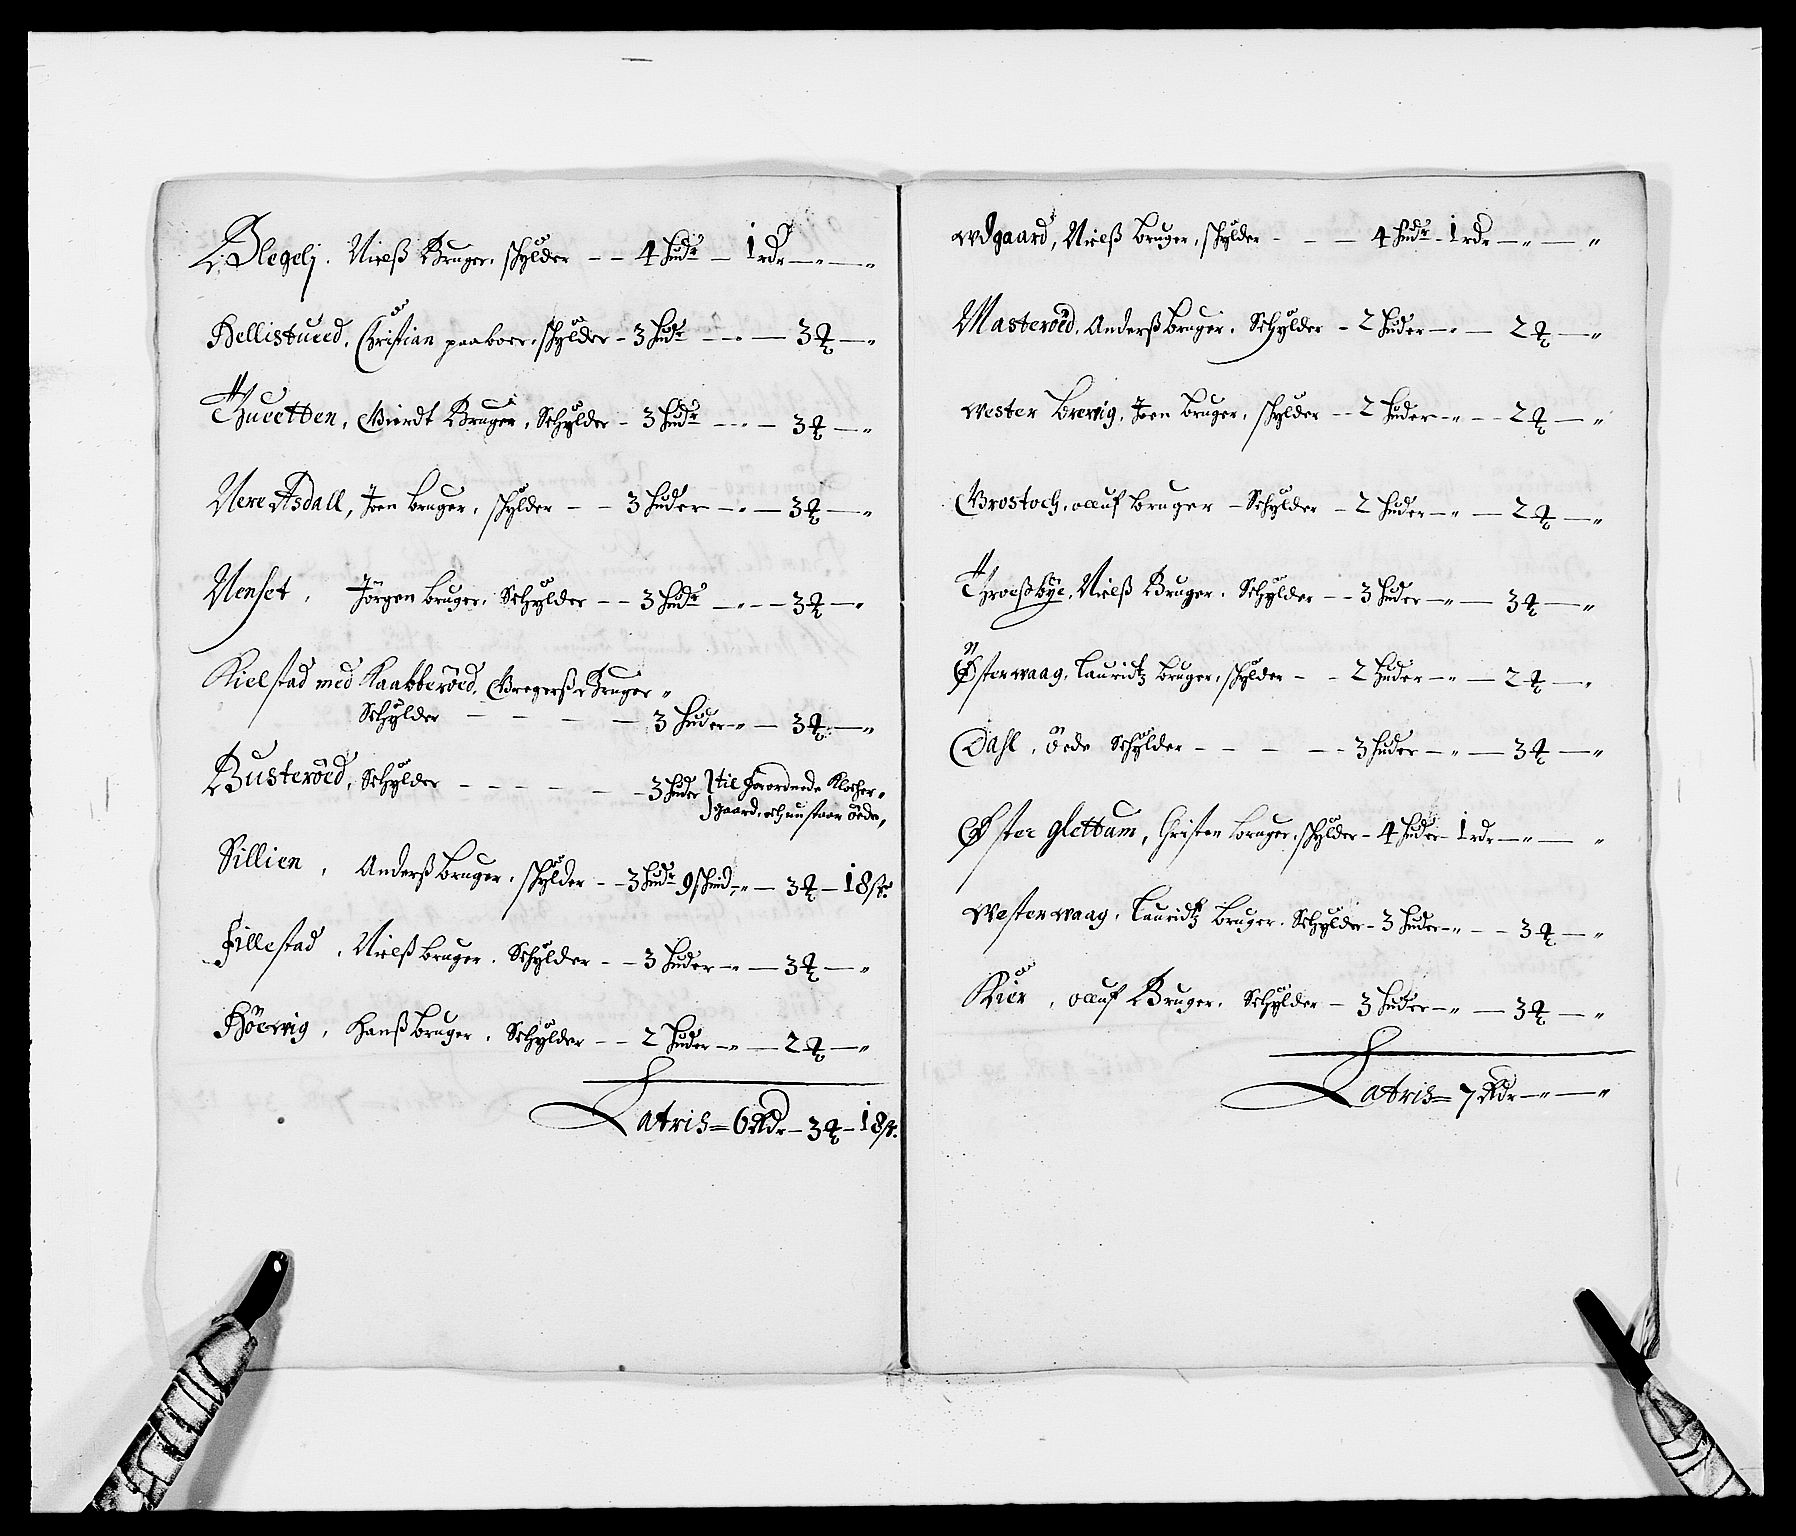 Blegelj. Nielß Bruger, schylder - - 4 hudr - 1 rdr - " - "
Hellistueed, Christian paaboer, schylder - 3 hudr - - " - 3 ₰ - "
Thueetten, Gierdt Bruger, Schylder - 3 hudr - - " - 3 ₰ - "
Nere Asdall, Joen bruger, schylder - - 3 huder - " - 3 ₰ - "
Nenset, Jörgen bruger, Schylder - - 3 hudr - " - - 3 ₰ - "
Kielstad med Kaabberöed, Gregerß Bruger "
Schylder - - - - 3 huder - " - 3 ₰ - "
Busteröed, Schylder - - - - - - 3 huder til forordnede Klocher "
gaard, och nu staar öede,
Sillien, Anderß bruger, schylder - - 3 hudr 9 schind - " - 3 ₰ - 18 sk
Fillestad, Nielß bruger, Schylder - - 3 huder - " - 3 ₰ - "
Höewig, Hanß bruger, Schylder - - 2 huder - " - 2 ₰ - "
Latris = 6 Rdr - 3 ₰ - 18 sk.
wdgaard, Nielß bruger, schylder - - - 4 hudr - 1 rdr - " - "
Masteröed, Anderß bruger, Schylder - 2 huder - " - 2 ₰ - "
wester brewig, Joen bruger, schylder - - 2 huder - " - - 2 ₰ - "
Grostoch, oluf bruger - Schylder - 2 huder - " - 2 ₰ - "
Throeßbÿe, Nielß Bruger, Schylder - - 3 huder - " - 3 ₰ - "
Østerwaag, Lauridtz bruger, schylder - - 2 huder - " - 2 ₰ - "
Dahl, öede Schylder - - - - - 3 huder - " - 3 ₰ - "
Øster glettum, Christen bruger, schylder - 4 huder 1 rdr - " - "
westerwaag, Lauridtz bruger, Schylder - 3 huder - " - - 3 ₰ - "
Kier, oluf Bruger, Schylder - 3 huder - " - 3 ₰ - "
Latris = 7 Rdr - " - "